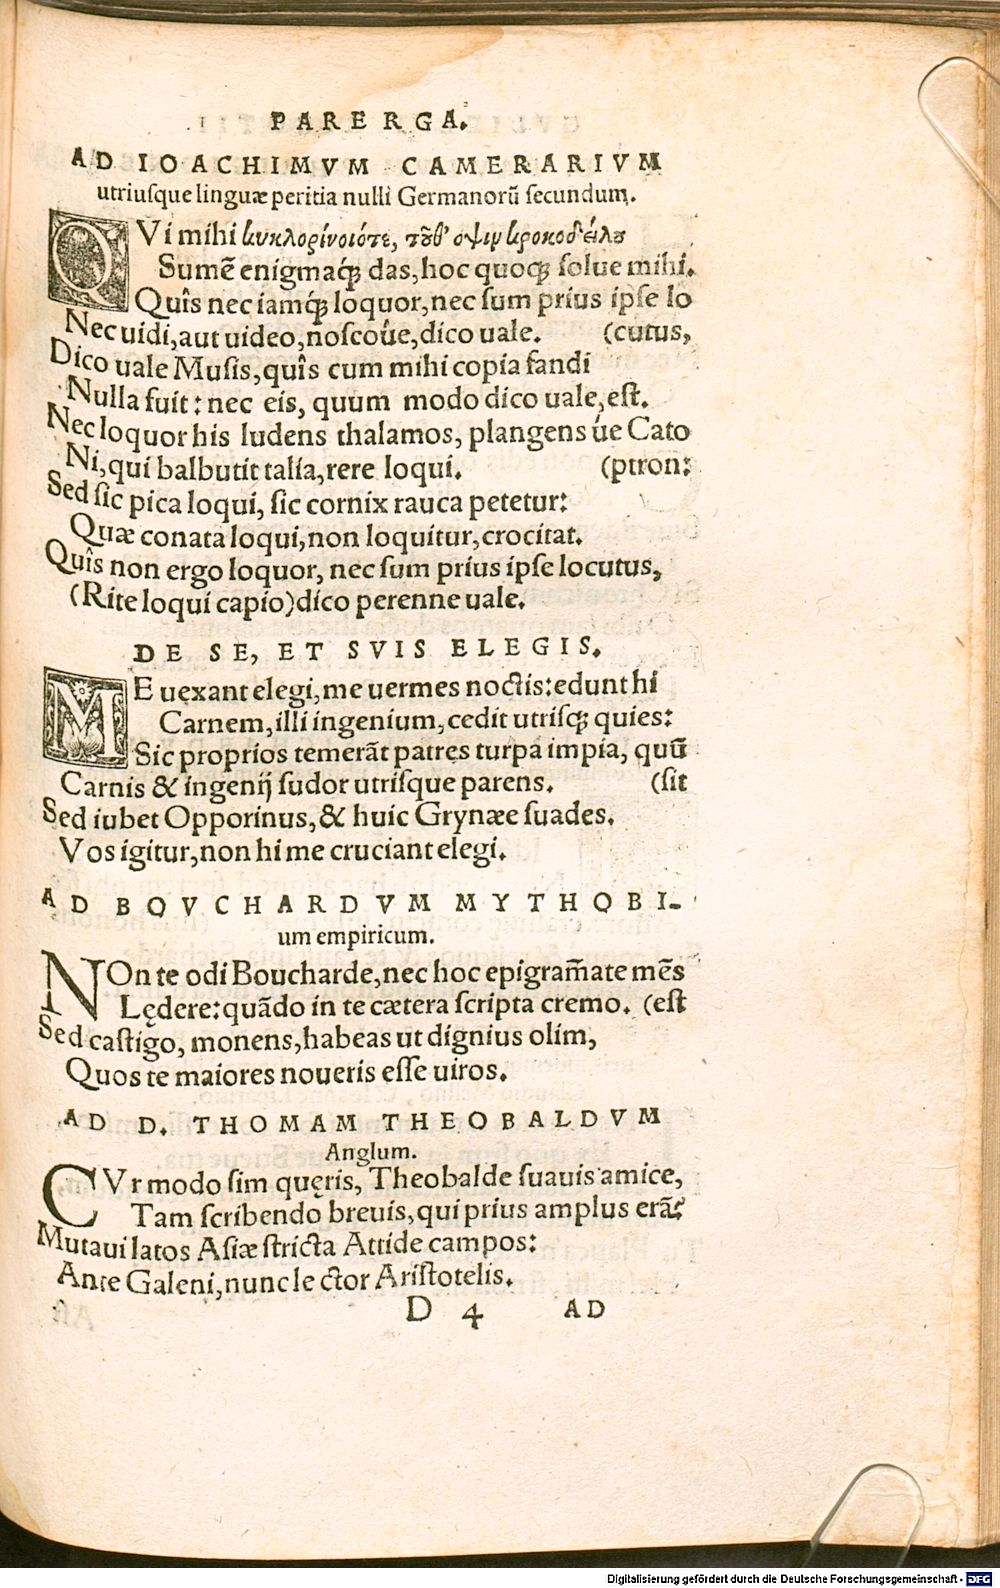 PARERGA.
AD IOACHIMVM CAMERARIVM
utriusque linguæ peritia nulli Germanorũ secundum.
QVi mihi κυκλορίνοιότε, τȣ̃θ' οψιν κροκοδείλȣ
Sumẽ enigmaq́; das, hoc quoq; solue mihi.
Quîs nec iamq́; loquor, nec sum prius ipse lo
Nec uidi, aut uideo, noscoûe, dico uale. (cutus,
Dico uale Musis, quîs cum mihi copia fandi
Nulla fuit: nec eis, quum modo dico uale, est.
Nec loquor his ludens thalamos, plangens úe Cato
Ni, qui balbutit talia, rere loqui. (ptron:
Sed sic pica loqui, sic cornix rauca petetur:
Quæ conata loqui, non loquitur, crocitat.
Quîs non ergo loquor, nec sum prius ipse locutus,
(Rite loqui capio) dico perenne uale.
DE SE, ET SVIS ELEGIS.
ME uexant elegi, me uermes noctis: edunt hi
Carnem, illi ingenium, cedit utrisq; quies:
Sic proprios temerãt patres turpa impia, quũ
Carnis & ingenij sudor utrisque parens. (sit
Sed iubet Opporinus, & huic Grynæe suades.
Vos igitur, non hi me cruciant elegi.
AD BOVCHARDVM MYTHOBI-
um empiricum.
NOn te odi Boucharde, nec hoc epigram̃ate mẽs
Lędere: quãdo in te cætera scripta cremo. (est
Sed castigo, monens, habeas ut dignius olim,
Quos te maiores noueris esse uiros.
AD D. THOMAM THEOBALDVM
Anglum.
CVr modo sim quęris, Theobalde suauis amice,
Tam scribendo breuis, qui prius amplus erã?
Mutaui latos Asiæ stricta Attide campos:
Ante Galeni, nunc lector Aristotelis.
D 4 AD
Digitalisierung gefördert durch die Deutsche Forschungsgemeinschaft - DFG